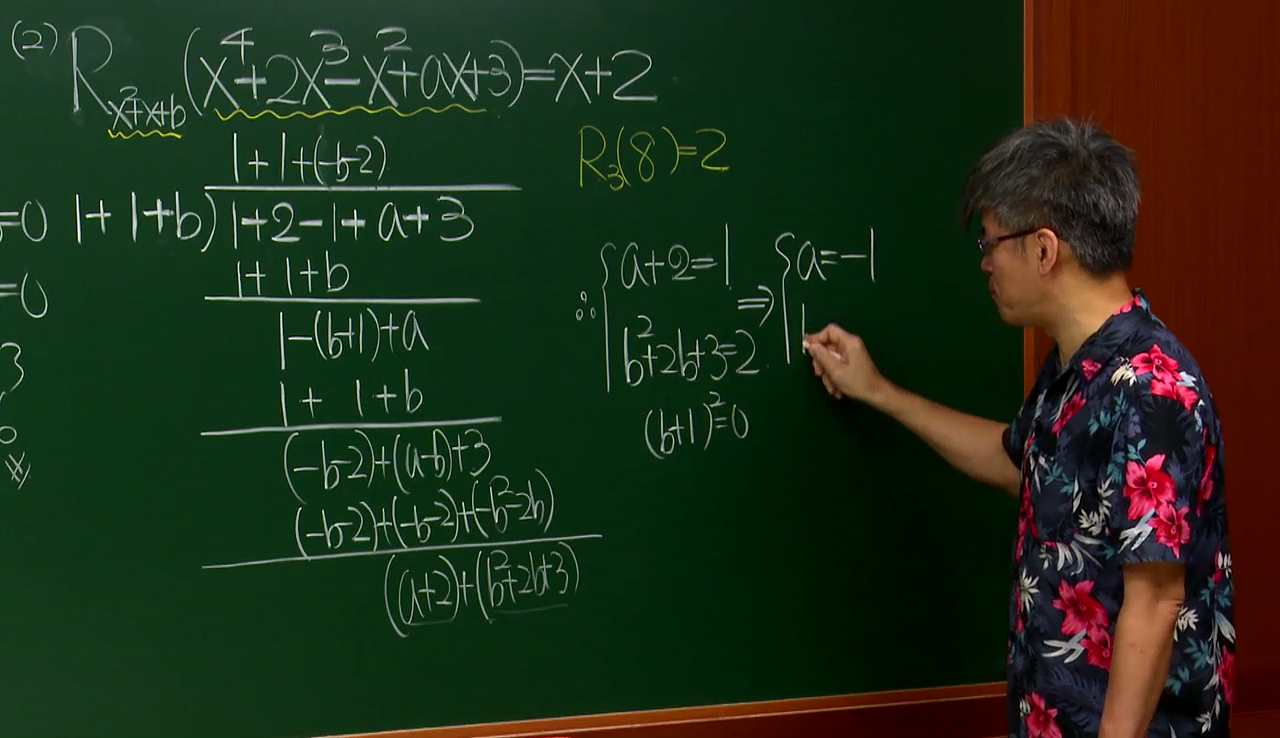 (2) R_{x²+x+b}(x⁴+2x³-x²+ax+3)=x+2
R₃(8)=2
1+1+(-b-2)
=0
1+1+b)1+2-1+a+3
1+1+b
=0
1-(b+1)+a
3
1+1+b
(-b-2)+(a-b)+3
(-b-2)+(-b-2)+(-b²-2b)
(a+2)+(b²+2b+3)
∴{a+2=1
b²+2b+3=2
(b+1)²=0
⇒{a=-1